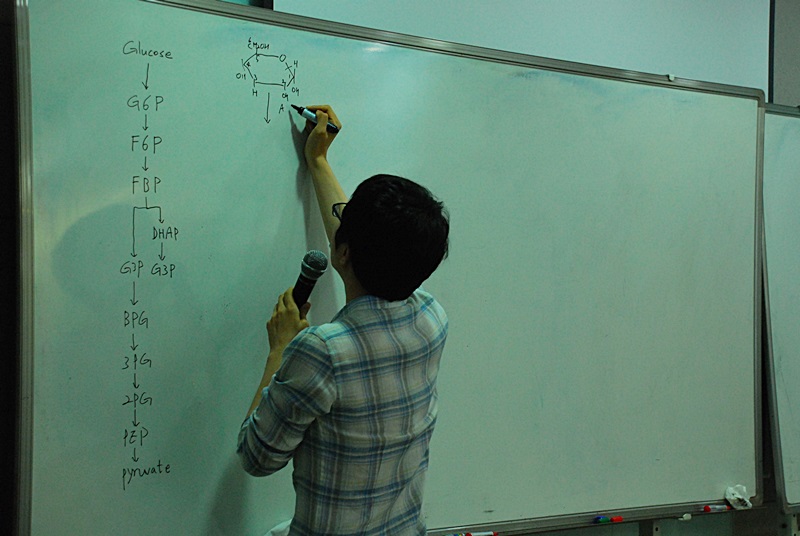 Glucose
G6P
F6P
FBP
DHAP
G3P G3P
BPG
3PG
2PG
PEP
pyruvate
O
H
OH
OH
H
OH
A